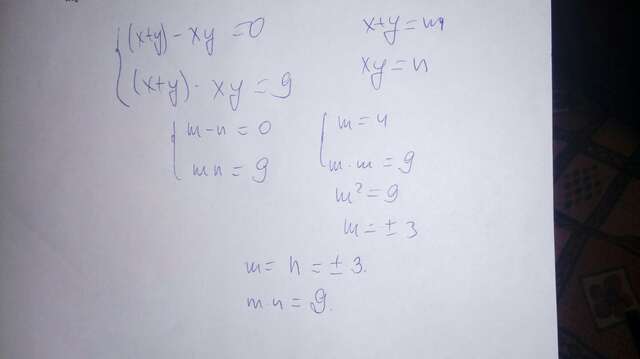 (x+y) - xy = 0
(x+y) · xy = 9
x+y = m
xy = n
m - n = 0
mn = 9
m = n
m · m = 9
m² = 9
m = ± 3
m = n = ± 3.
m·n = 9.